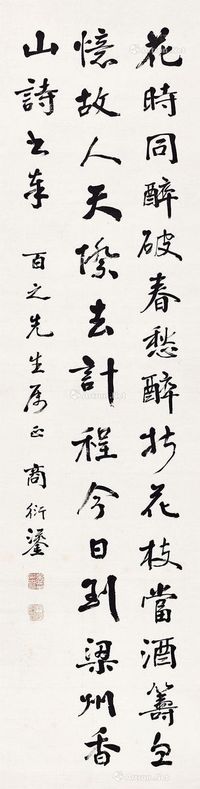 花時同醉破春愁醉折花枝當酒籌忽
憶故人天際去計程今日到梁州香
山詩書奉
百之先生屬正 商衍鎏